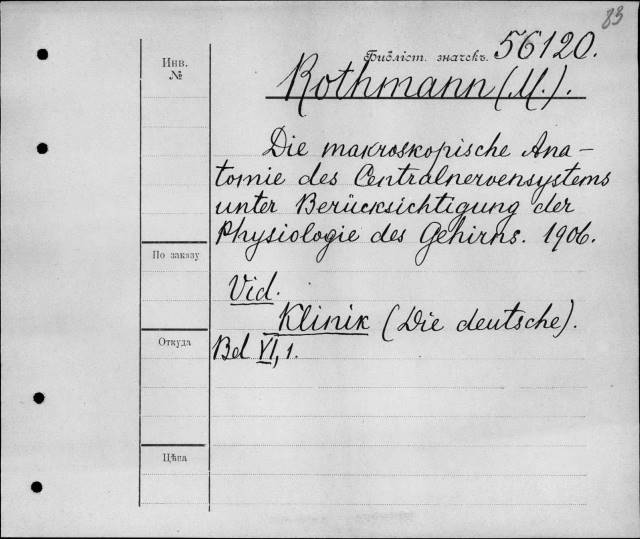 83
Инв.
№
Библіот. значекъ. 56120.
Rothmann (M.).
Die makroskopische Ana-
tomie des Centralnervensystems
unter Berücksichtigung der
Physiologie des Gehirns. 1906.
По заказу
Vid.
Klinik (Die deutsche).
Откуда
Bd VI, 1.
Цѣна